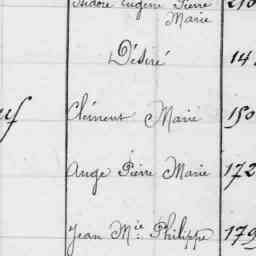 Isidore Eugène Pierre 210
Marie
Désiré 14
Clément Marie 150
Ange Pierre Marie 172
Jean Mie Philippe 179